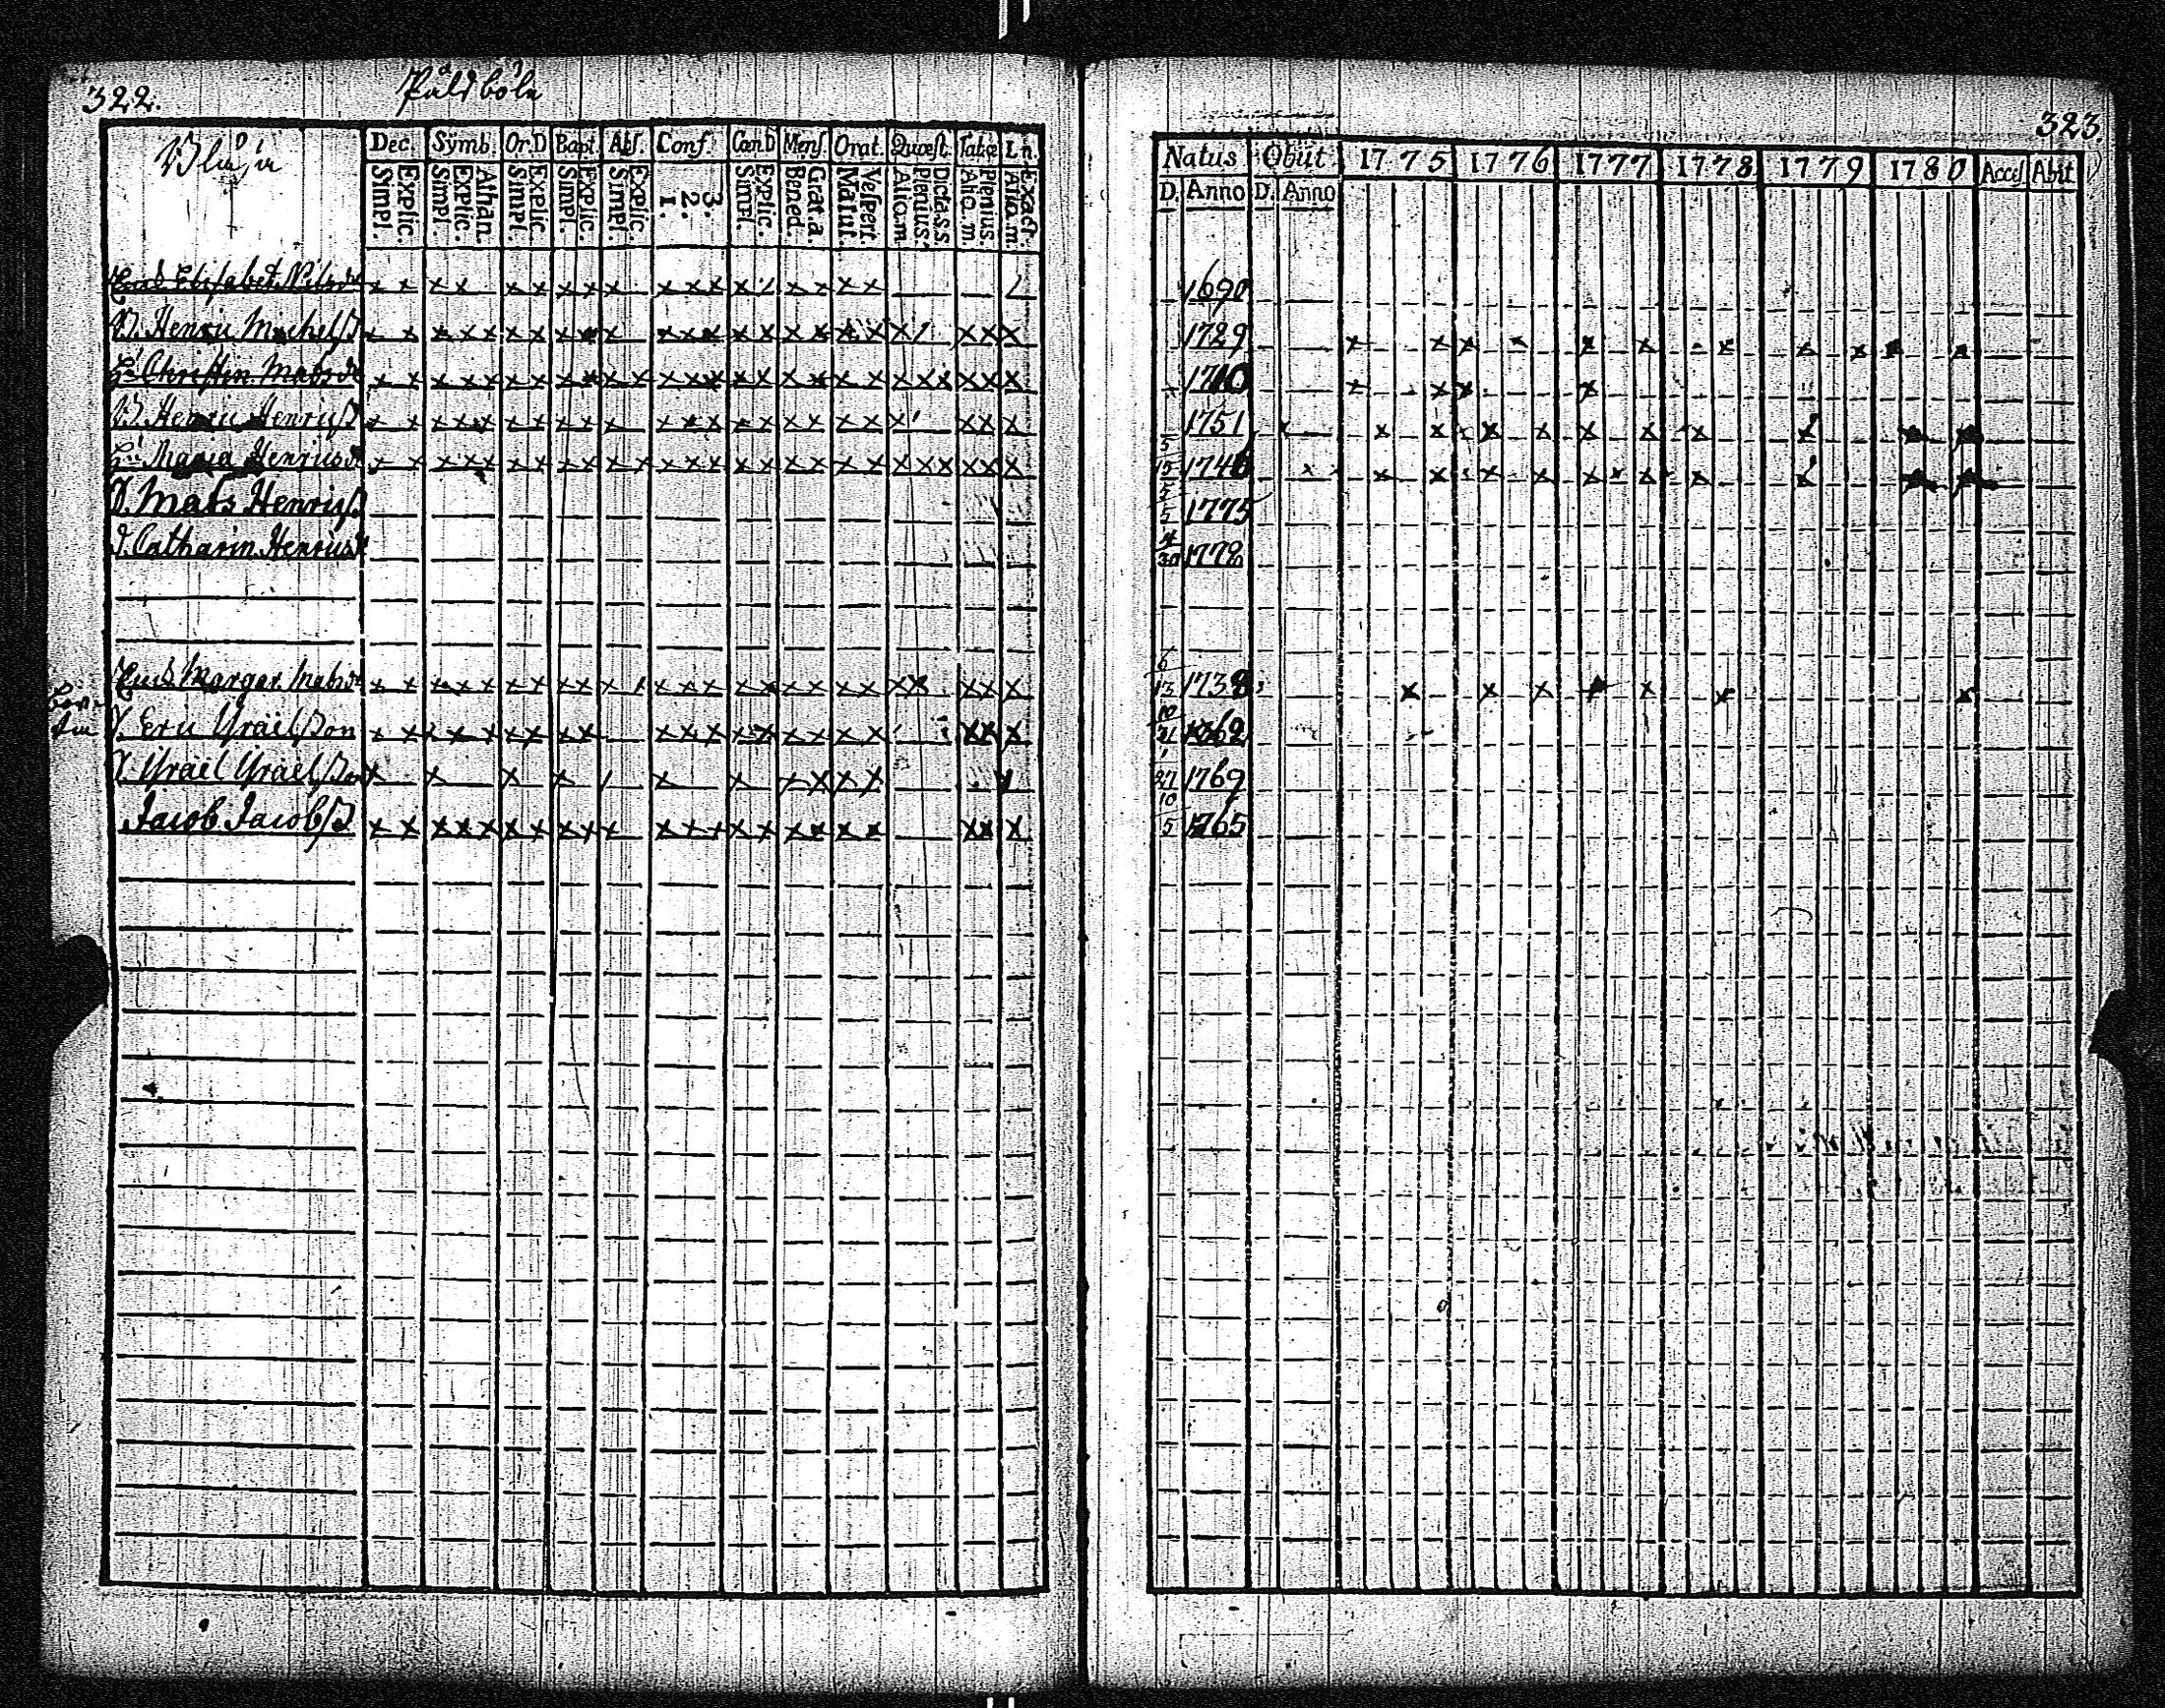 322.
Påldböle
Dec. Symb. Or.D Bapt. Abſ. Conf. Cœn.D Menſ. Orat. Quæſt. Tabœ L.n.
Explic. Simpl. Athan. Explic. Simpl. Explic. Simpl. Explic. Simpl. Explic. Simpl. 3. 2. 1. Explic. Simpl. Grat.a. Bened. Veſpert. Matut. Dicta.s.s. Plenius. Alio.m. Plenius. Alio.m. Exact. Alio.m.
Enk. Elisabet Nilsdr x x x x x x x x x x x x x x x x x
B. Henric Michelſ. x x x x x x x x x x x x x x x x x x x x x x x x x
H. Christin Matsdr x x x x x x x x x x x x x x x x x x x x x x x x x x
B. Henric Henricſ. x x x x x x x x x x x x x x x x x x x x x x x x
H. Maria Henricsdr x x x x x x x x x x x x x x x x x x x x x x x x x x
S. Mats Henricſ.
d. Catharin Henricsdr
Enk. Margar. Matsdr x x x x x x x x x x x x x x x x x x x x x x x
S. Eric Israelsson x x x x x x x x x x x x x x x x x x x x x
S. Israel Israelsson x x x x x x x x x x
Jacob Jacobſ. x x x x x x x x x x x x x x x x x x x x x x
323.
Natus Obiit 1775 1776 1777 1778 1779 1780 Acceſ Abiit
D. Anno D. Anno
1690
1729 x x x x x x x x x x x
1710 x x x x
1751 x x x x x x x x x x
5/15 1746 x x x x x x x x x x x
5 1775
4/30 1778
6/13 1738 x x x x x x x
10/21 1762
1/27 1769
10/5 1765